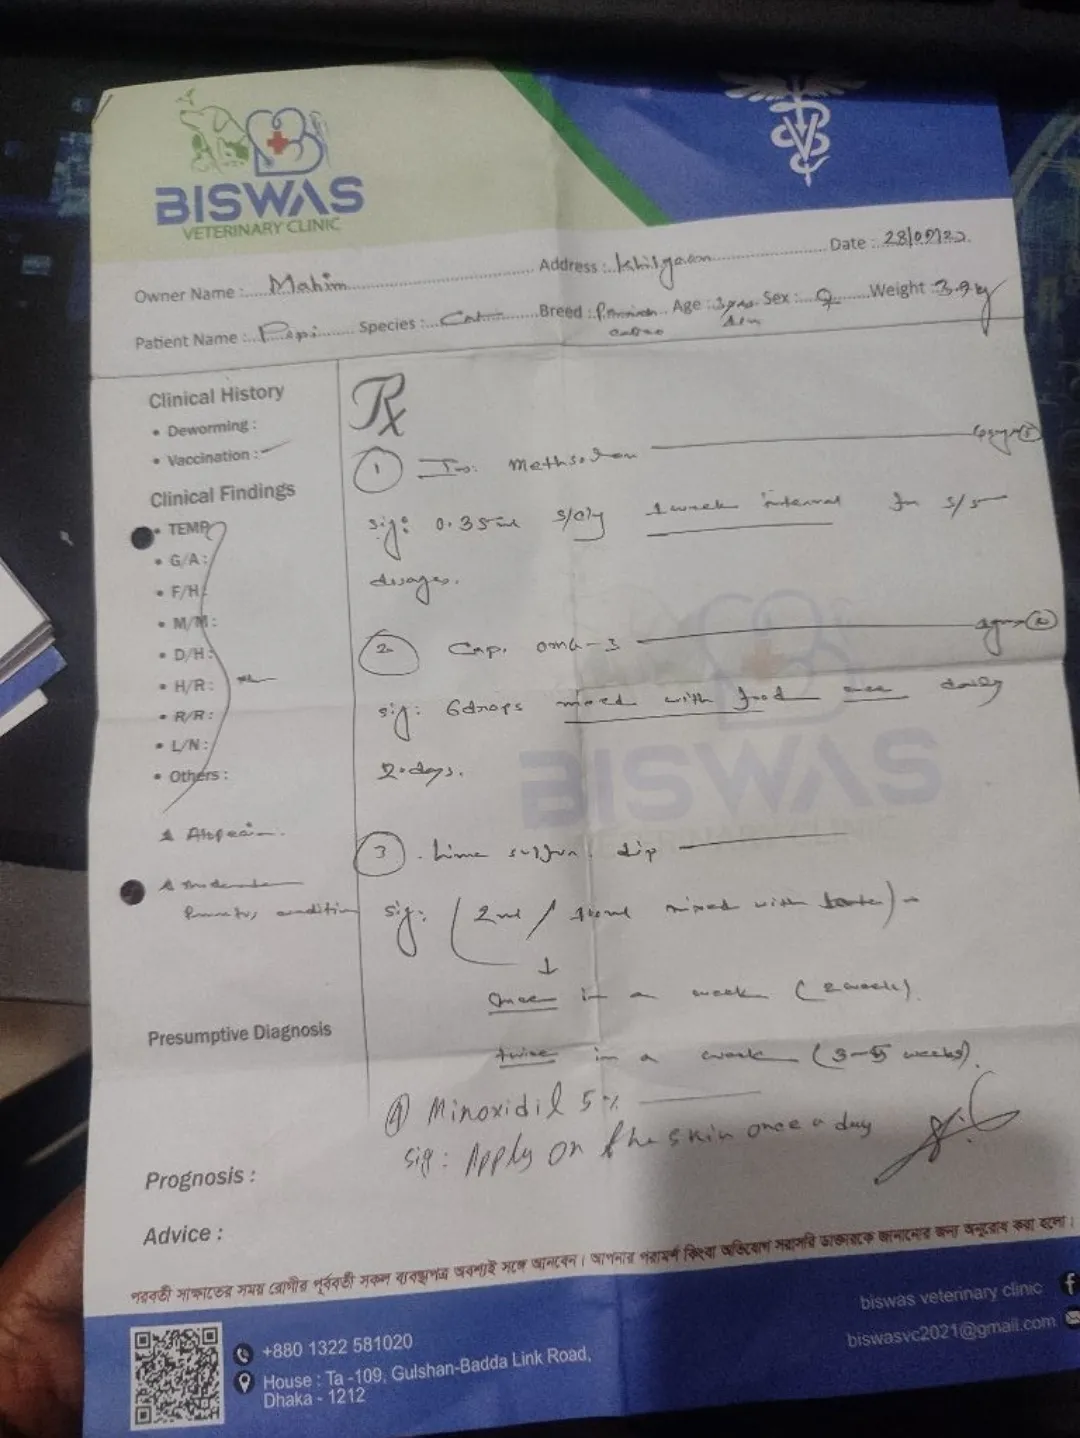 BISWAS
VETERINARY CLINIC
Owner Name : Mahim Address : Khilgaon Date :
Patient Name : Pipi Species : Cat Breed : Age : Sex : ♀ Weight : 3.9 kg
Clinical History
• Deworming :
• Vaccination :
Clinical Findings
• TEMP
• G/A :
• F/H
• M/M :
• D/H :
• H/R :
• R/R :
• L/N :
• Others :
Presumptive Diagnosis
Prognosis :
Advice :
Rx
① Methsolon
sig: 0.35 ml s/c/y 1 week interval for
dosages.
② Cap. omg-3
sig: 6 drops mixed with food once daily
20 days.
③ . Lime sulfur dip
sig: (2ml / mixed with
↓
Once in a week (2 week).
twice in a week (3-5 weeks).
④ Minoxidil 5%
sig : Apply on the skin once a day
পরবর্তী সাক্ষাতের সময় রোগীর পূর্ববর্তী সকল ব্যবস্থাপত্র অবশ্যই সঙ্গে আনবেন। আপনার পরামর্শ কিংবা অভিযোগ সরাসরি ডাক্তারকে জানানোর জন্য অনুরোধ করা হলো।
+880 1322 581020
House : Ta -109, Gulshan-Badda Link Road,
Dhaka - 1212
biswas veterinary clinic
biswasvc2021@gmail.com
BISWAS